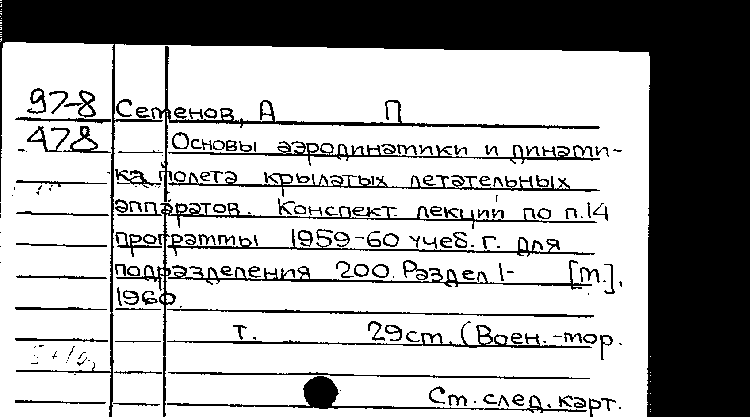 97-8 Семенов, А П
478 Основы аэродинамики и динами-
ка полета крылатых летательных
аппаратов. Конспект лекций по п.14
программы 1959-60 учеб. г. для
подразделения 200. Раздел 1- [м.],
1960.
т. 29см. (Воен.-мор.
См. след. карт.